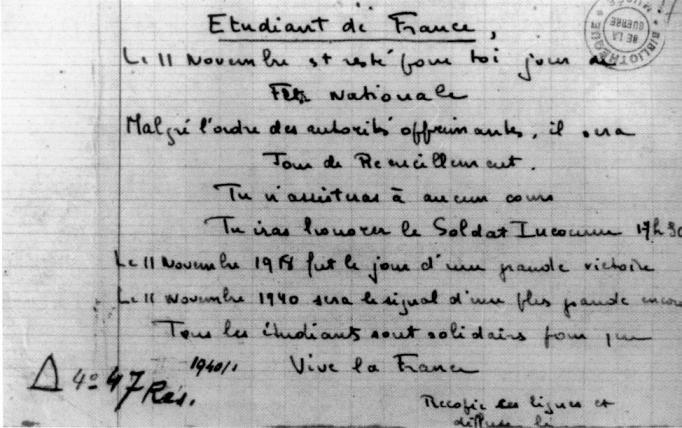 Etudiant de France,
Le 11 Novembre est resté pour toi jour de
Fête Nationale
Malgré l'ordre des autorités opprimantes, il sera
Jour de Recueillement.
Tu n'assisteras à aucun cours
Tu iras honorer le Soldat Inconnu 17h30
Le 11 Novembre 1918 fut le jour d'une grande victoire
Le 11 Novembre 1940 sera le signal d'une plus grande encore
Tous les étudiants sont solidaires pour que
Vive la France
1940/1
Δ 4º 47 Rés.
Recopie ces lignes et
diffuse les
BIBLIOTHÈQUE
DE LA
GUERRE